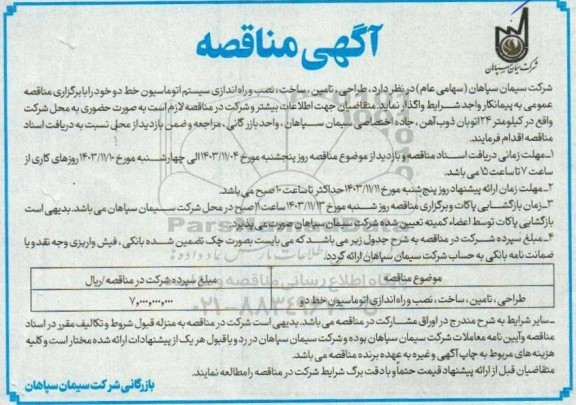 آگهی مناقصه
شرکت سیمان سپاهان
شرکت سیمان سپاهان (سهامی عام) در نظر دارد، طراحی، تامین، ساخت، نصب و راه اندازی سیستم اتوماسیون خط دو خود را با برگزاری مناقصه
عمومی به پیمانکار واجد شرایط واگذار نماید. متقاضیان جهت اطلاعات بیشتر و شرکت در مناقصه لازم است به صورت حضوری به محل شرکت
واقع در کیلومتر ۲۴ اتوبان ذوب آهن، جاده اختصاصی سیمان سپاهان، واحد بازرگانی، مراجعه و ضمن بازدید از محل نسبت به دریافت اسناد
مناقصه اقدام فرمایند.
۱-مهلت زمانی دریافت اسناد مناقصه و بازدید از موضوع مناقصه روز پنجشنبه مورخ ۱۴۰۳/۱۱/۰۴ الی چهارشنبه مورخ ۱۴۰۳/۱۱/۱۰ روزهای کاری از
ساعت ۷ تا ساعت ۱۵ می باشد.
۲-مهلت زمان ارائه پیشنهاد روز پنج شنبه مورخ ۱۴۰۳/۱۱/۱۱ حداکثر تا ساعت ۱۰ صبح می باشد.
۳-زمان بازگشایی پاکات و برگزاری مناقصه روز شنبه مورخ ۱۴۰۳/۱۱/۱۳ ساعت ۱۱ صبح در محل شرکت سیمان سپاهان می باشد. بدیهی است
بازگشایی پاکات توسط اعضاء کمیته تعیین شده شرکت سیمان سپاهان صورت می پذیرد.
۴-مبلغ سپرده شرکت در مناقصه به شرح جدول زیر می باشد که می بایست بصورت چک تضمین شده بانکی، فیش واریزی وجه نقد و یا
ضمانت نامه بانکی به حساب شرکت سیمان سپاهان ارائه گردد.
موضوع مناقصه مبلغ سپرده شرکت در مناقصه/ریال
طراحی، تامین، ساخت، نصب و راه اندازی اتوماسیون خط دو ۷,۰۰۰,۰۰۰,۰۰۰
-سایر شرایط به شرح مندرج در اوراق مشارکت در مناقصه می باشد. بدیهی است شرکت در مناقصه به منزله قبول شروط و تکالیف مقرر در اسناد
مناقصه و آیین نامه معاملات شرکت سیمان سپاهان بوده و شرکت سیمان سپاهان در رد و یا قبول هر یک از پیشنهادات ارائه شده مختار است و کلیه
هزینه های مربوط به چاپ آگهی و غیره به عهده برنده مناقصه می باشد.
متقاضیان قبل از ارائه پیشنهاد قیمت حتماً و با دقت برگ شرایط شرکت در مناقصه را مطالعه نمایند.
بازرگانی شرکت سیمان سپاهان